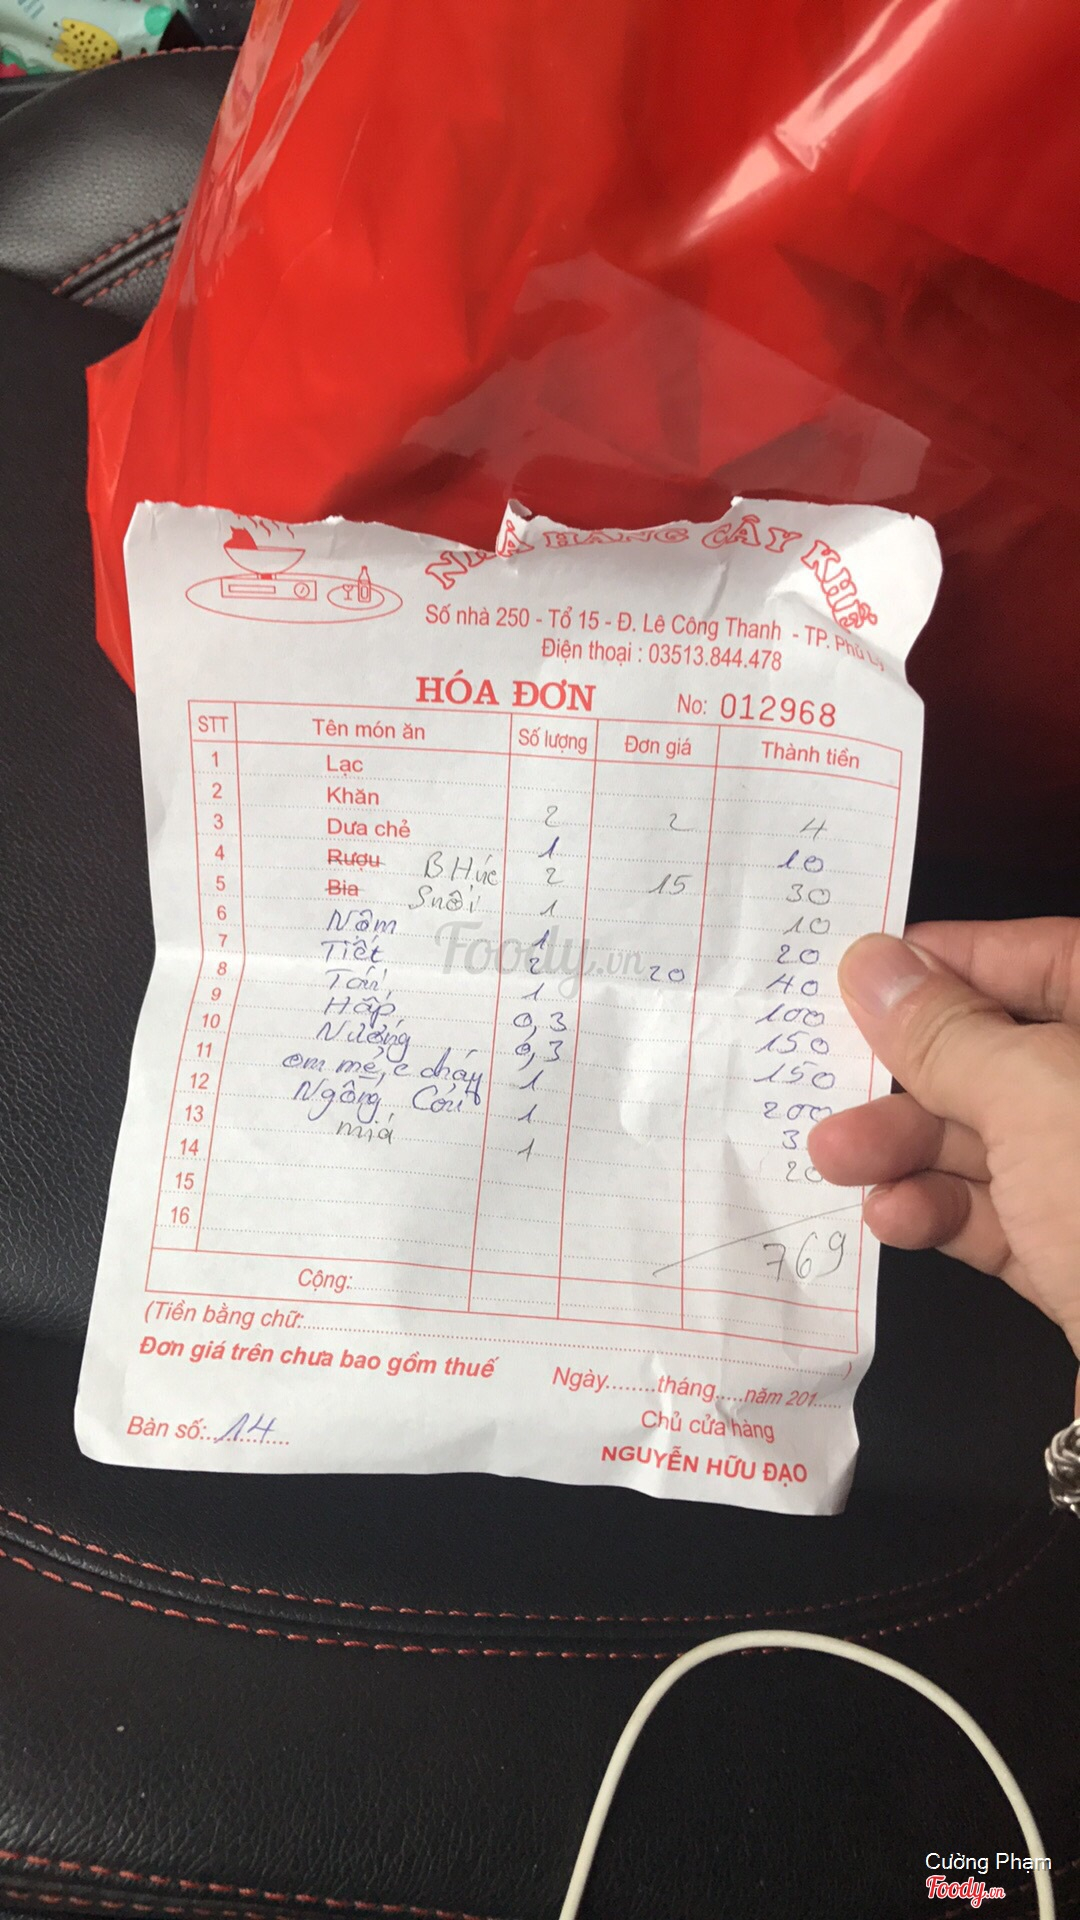 NHÀ HÀNG CÂY KHẾ
Số nhà 250 - Tổ 15 - Đ. Lê Công Thanh - TP. Phủ Lý
Điện thoại : 03513.844.478
HÓA ĐƠN No: 012968
STT Tên món ăn Số lượng Đơn giá Thành tiền
1 Lạc
2 Khăn 2 2 4
3 Dưa chẻ 1 10
4 Rượu B Húc 2 15 30
5 Bia Suối 1 10
6 Nộm 1 20
7 Tiết 2 20 40
8 Tái 1 100
9 Hấp 0,3 150
10 Nướng 0,3 150
11 om mẻ, c cháy 1 200
12 Ngồng Cải 1 3
13 mía 1 20
14
15
16
769
Cộng:
(Tiền bằng chữ: )
Đơn giá trên chưa bao gồm thuế
Ngày........tháng.....năm 201......
Chủ cửa hàng
Bàn số: 14
NGUYỄN HỮU ĐẠO
Foody.vn
Cường Phạm
Foody.vn